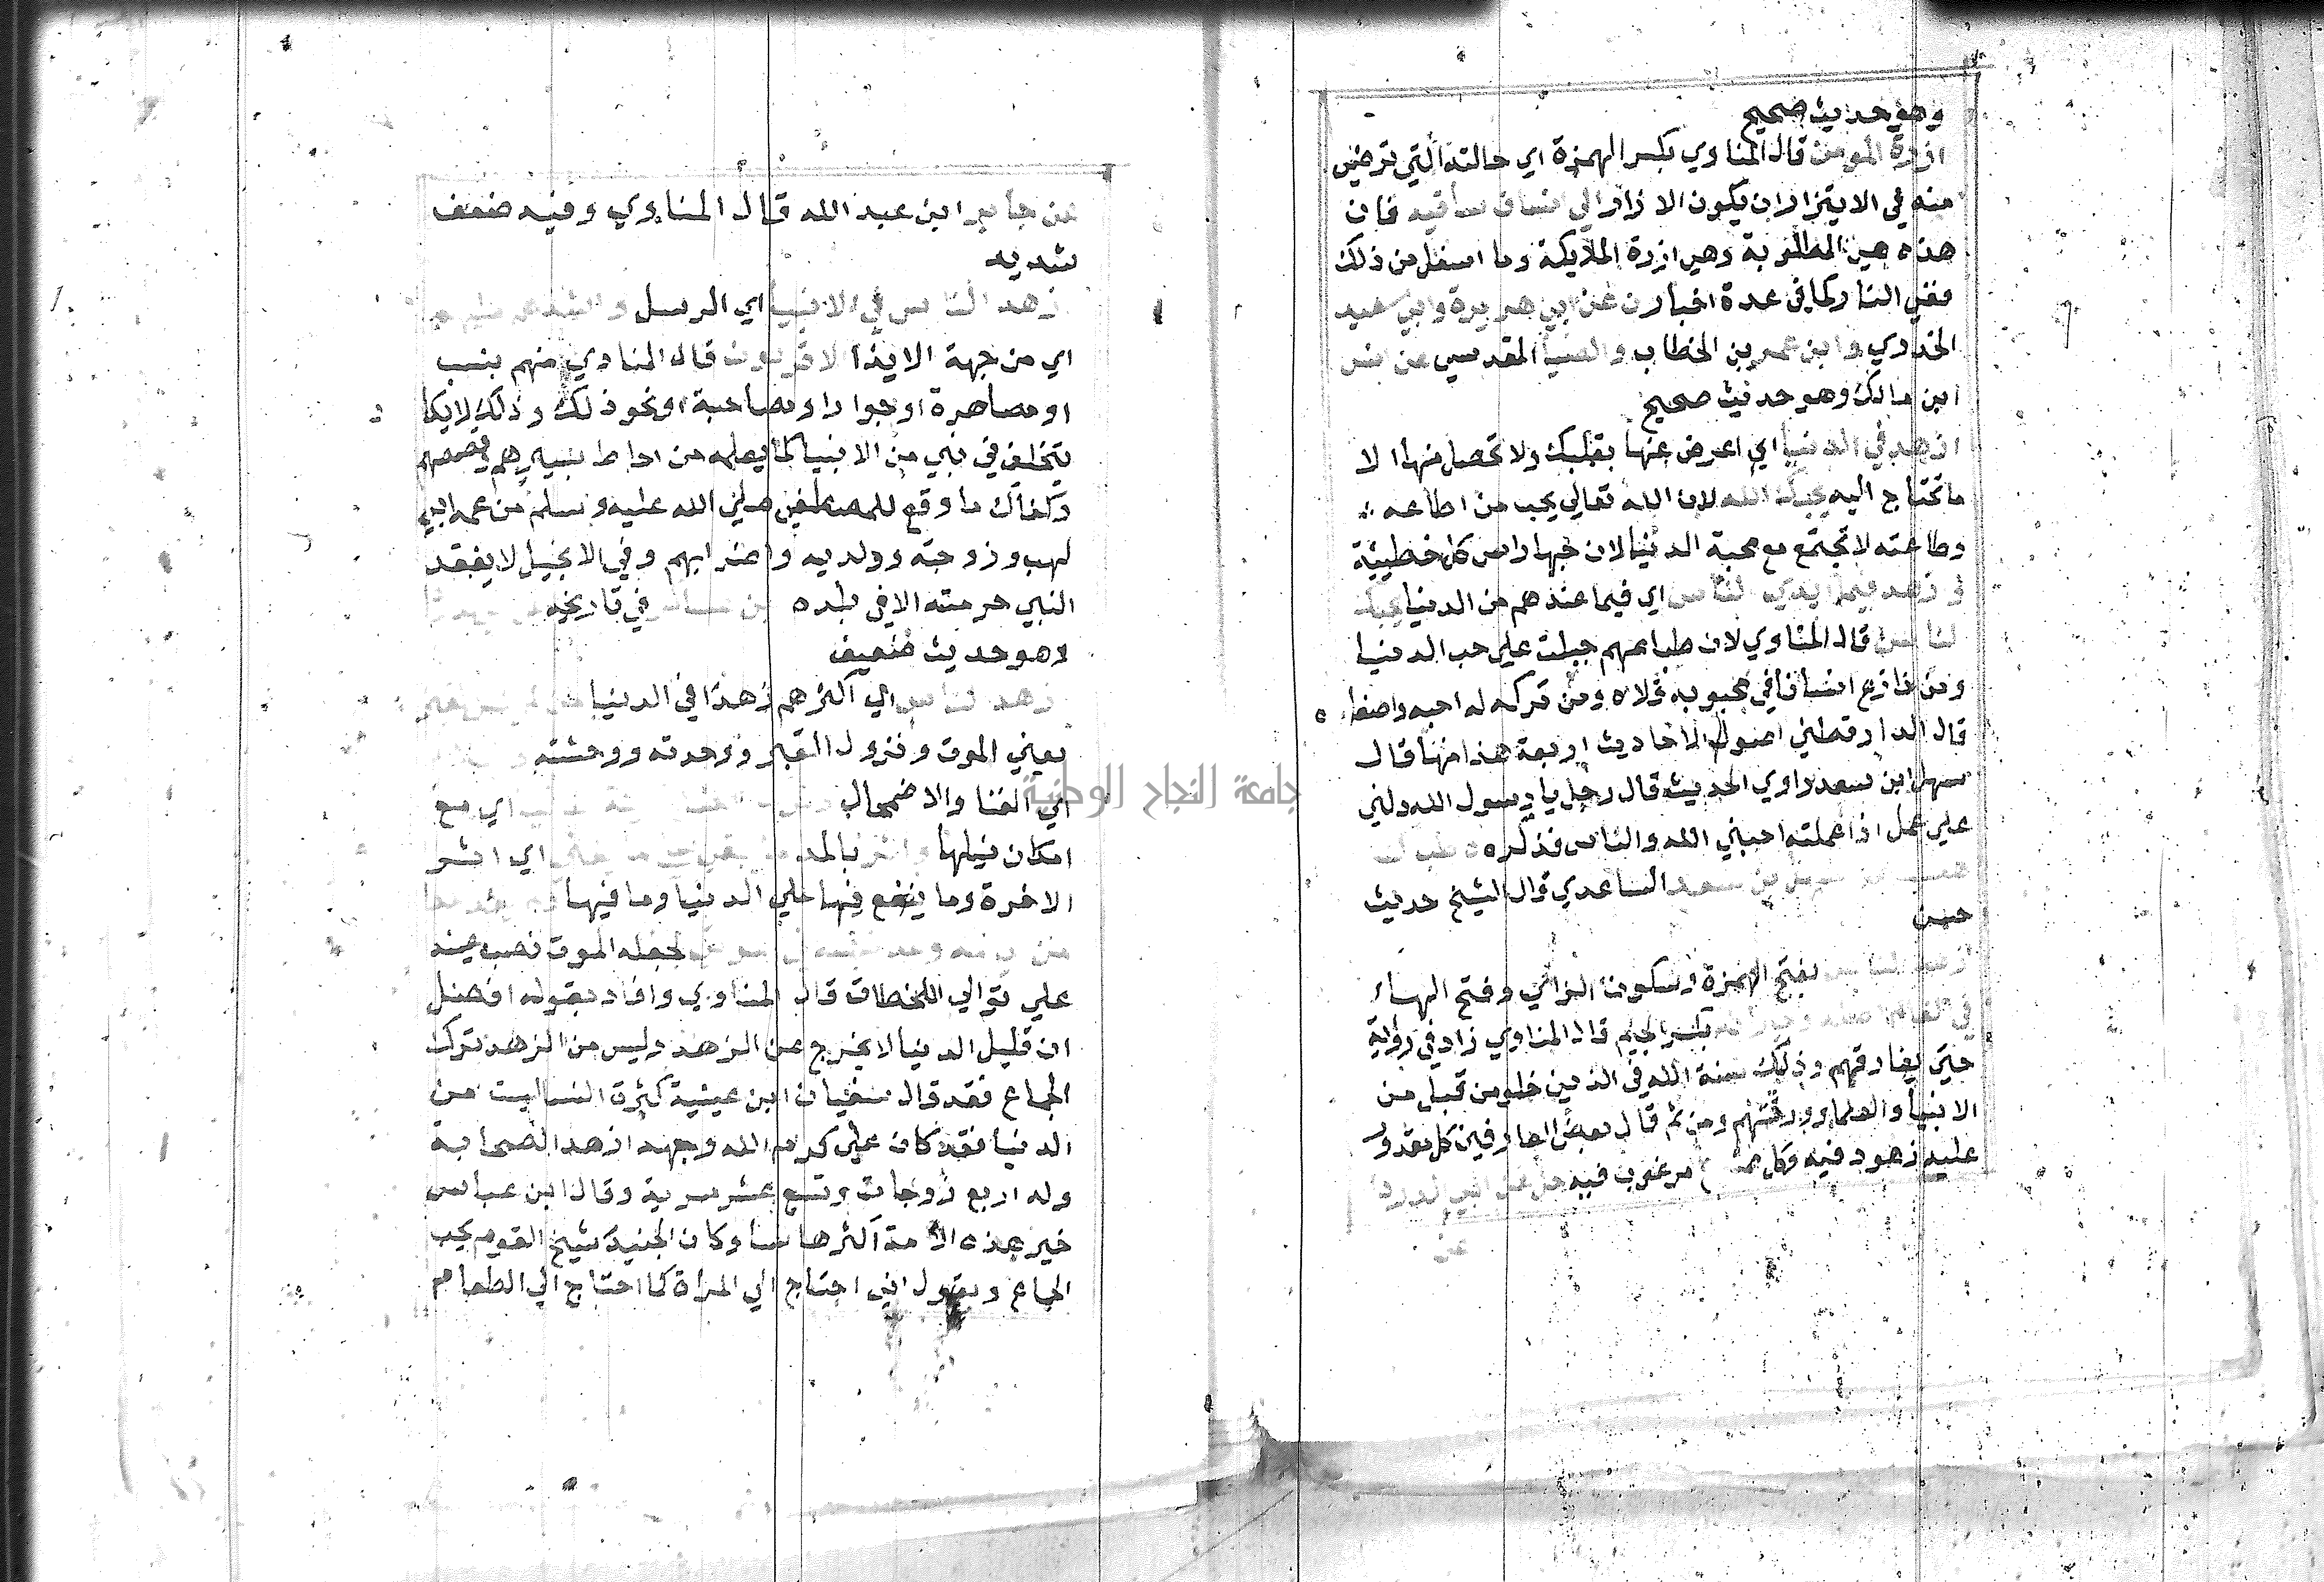 وهو حديث صحيح
ازرة المومن قال المناوي بكسر الهمزة اي حالته التي ترضي
منه في الايتزار ان يكون الازار الي انصاف ساقيه فان
هذه هي المطلوبة وهي ازرة الملايكة وما اسفل من ذلك
ففي النار كما في عدة اخبار ن عن ابي هريرة وابي سعيد
الخدري وابن عمر بن الخطاب والضيا المقدسي عن انس
ابن مالك وهو حديث صحيح
ازهد في الدنيا اي اعرض عنها بقلبك ولا تحصل منها الا
ما تحتاج اليه يحبك الله لان الله تعالي يحب من اطاعه
وطاعته لا تجتمع مع محبة الدنيا لان حبها راس كل خطيئة
وازهد فيما ايدي الناس اي فيما عندهم من الدنيا يحبك
الناس قال المناوي لان طباعهم جبلت علي حب الدنيا
ومن نازع انسانا في محبوبه قلاه ومن تركه له احبه واصطفاه
قال الدارقطني اصول الاحاديث اربعة هذا منها قال
سهل ابن سعد راوي الحديث قال رجل يا رسول الله دلني
علي عمل اذا عملته احبني الله والناس فذكره
عن سهل بن سعد الساعدي قال الشيخ حديث
حسن
ازهد الناس بفتح الهمزة وسكون الزاي وفتح الهاء
في العالم اهله وجيرانه بكسر الجيم قال المناوي زاد في رواية
حتي يفارقهم وذلك سنة الله في الذين خلو من قبل من
الانبيا والعلما وورثتهم ومن ثم قال بعض العارفين كل مقدور
عليه زهود فيه وكل ممنوع مرغوب فيه حل عن ابي الدرداء
عن
عن جابر ابن عبد الله قال المناوي وفيه ضعف
شديد
ازهد الناس في الانبيا اي الرسل واشدهم عليهم
اي من جهة الايذا الاقربون قال المناوي منهم بنسب
او مصاهرة او جوار او مصاحبة او نحو ذلك وذلك لا يكاد
يتخلف في نبي من الانبيا كما يعلمه من احاط بسيرهم وقصصهم
وكفاك ما وقع للمصطفي صلي الله عليه وسلم من عمه ابي
لهب وزوجته وولديه واضرابهم وفي الانجيل لا يفقد
النبي حرمته الا في بلده ابن عساكر في تاريخه
وهو حديث ضعيف
ازهد الناس اي اكثرهم زهدا في الدنيا من لم ينس القبر
يعني الموت ونزول القبر ووحدته ووحشته
اي الفنا والاضمحلال وترك زينة اي مع
امكان نيلها واثر ما يبقي علي ما يفني اي اثر
الاخرة وما ينفع فيها علي الدنيا وما فيها ولم يعد غدا
من ايامه وعد نفسه في الموتي لجعله الموت نصب عينيه
علي توالي اللحظات قال المناوي وافاد بقوله افضل
ان قليل الدنيا لا يخرج عن الزهد وليس من الزهد ترك
الجماع فقد قال سفيان ابن عيينة كثرة النسا ليست من
الدنيا فقد كان علي كرم الله وجهه ازهد الصحابة
وله اربع زوجات وتسع عشر سرية وقال ابن عباس
خير هذه الامة اكثرها نسا وكان الجنيد شيخ القوم يحب
الجماع ويقول اني احتاج الي المراة كما احتاج الي الطعام
جامعة النجاح الوطنية